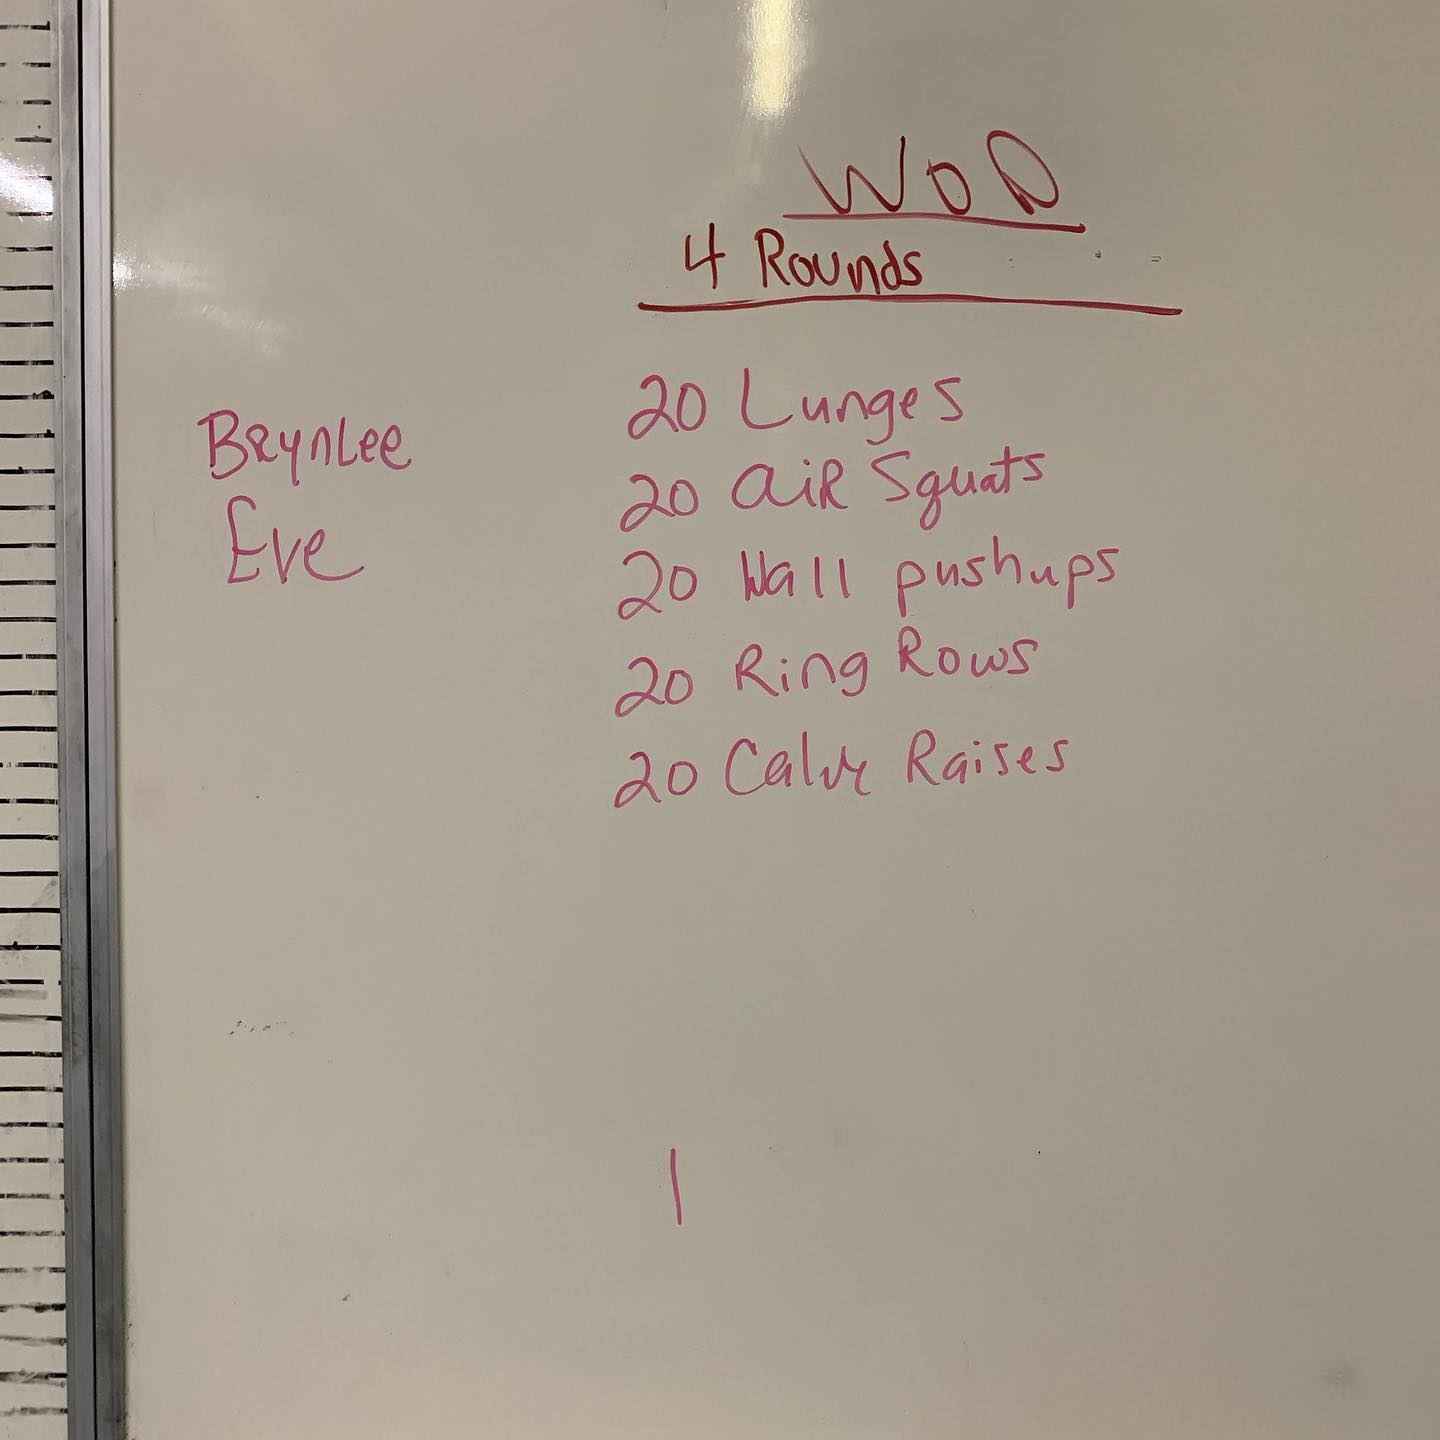 WOD
4 Rounds
20 Lunges
20 AiR Squats
20 Wall pushups
20 Ring Rows
20 Calve Raises
BRynLee
Eve
1